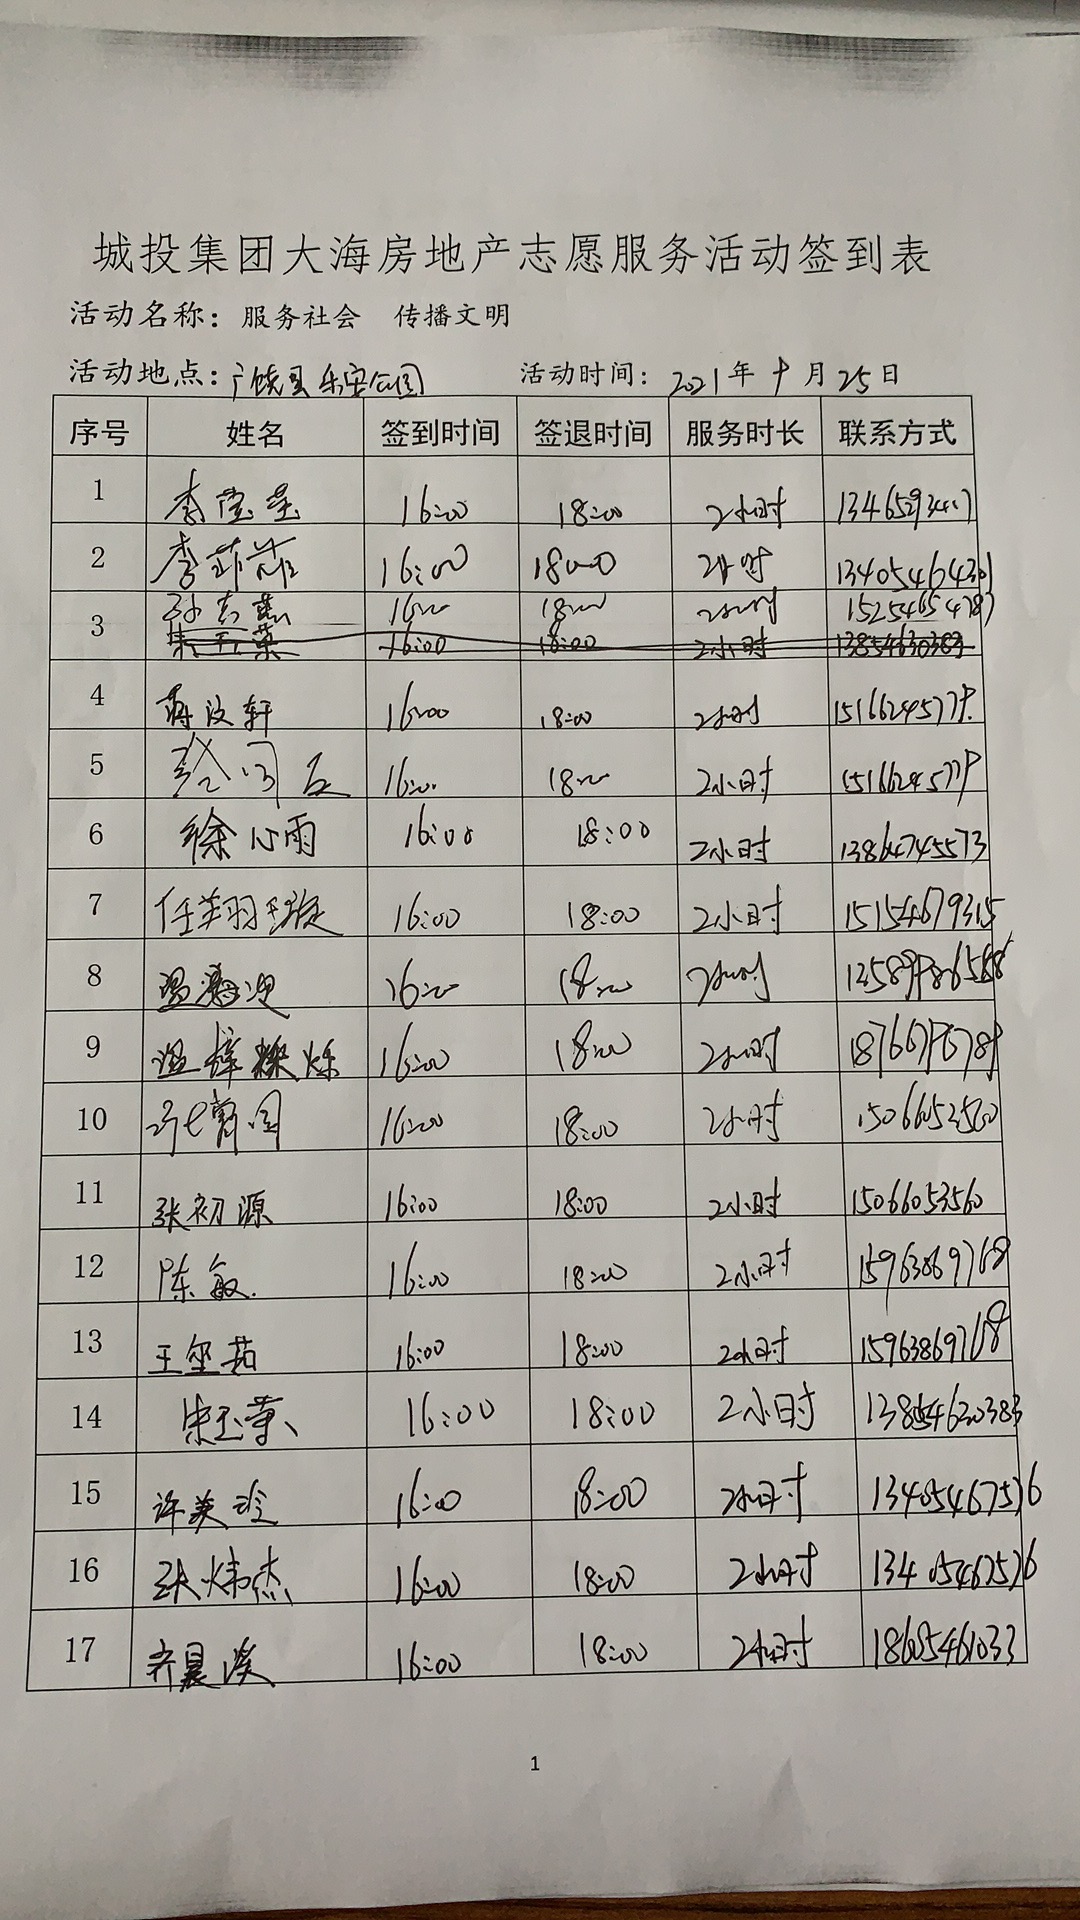 城投集团大海房地产志愿服务活动签到表
活动名称：服务社会 传播文明
活动地点：广饶县乐安公园 活动时间：2021年十月25日
序号 姓名 签到时间 签退时间 服务时长 联系方式
1 李莹莹 16:00 18:00 2小时
2 李菲菲 16:00 18:00 2小时 13405464301
3 16:00 18:00 2小时 15254654787
宋玉英 16:00 18:00 2小时 13854630383
4 蒋汶轩 16:00 18:00 2小时
5 16:00 18:00 2小时
6 徐心雨 16:00 18:00 2小时 13864745573
7 任翔璇 16:00 18:00 2小时 15154679315
8 16:00 18:00 2小时
9 16:00 18:00 2小时
10 16:00 18:00 2小时 15066053560
11 张初源 16:00 18:00 2小时 15066053560
12 陈敏 16:00 18:00 2小时 15963869768
13 王玺茹 16:00 18:00 2小时 15963869768
14 宋玉英 16:00 18:00 2小时 13854630383
15 许美玲 16:00 18:00 2小时 13405467576
16 张炜杰 16:00 18:00 2小时 13405467576
17 齐晨溪 16:00 18:00 2小时 18605461033
1